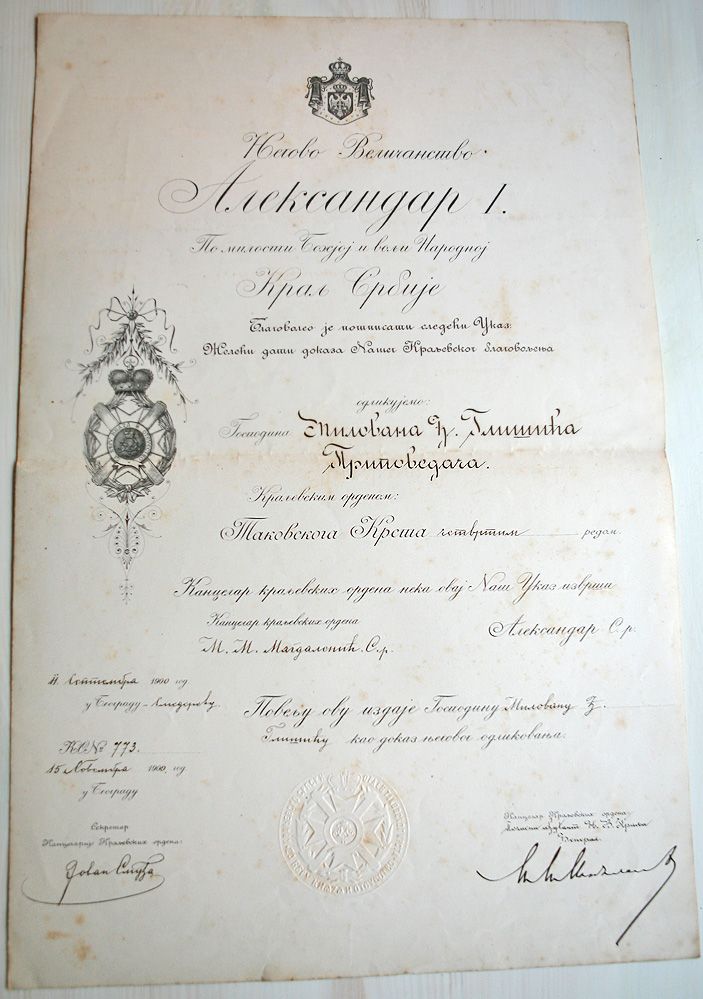 Његово Величанство
Александар I.
По милости Божјој и вољи Народној
Краљ Србије
Благоволео је потписати следећи Указ:
Желећи дати доказа Нашег Краљевског благовољења
одликујемо:
Господина Милована Ђ. Глишића
Приповедача.
Краљевским орденом:
Таковскога Крста четвртим редом.
Канцелар краљевских ордена нека овај Наш Указ изврши
Канцелар краљевских ордена
Александар С. р.
М. М. Магдаленић. С. р.
11. Септембра 1900 год
у Београду
Повељу ову издаје Господину Миловану Ђ.
Глишићу као доказ његовог одликовања.
К.О. № 773.
15 Новембра 1900. год
у Београду
Секретар
Канцеларије Краљевских ордена:
Канцелар Краљевских ордена
почасни ађутант Њ. В. Краља
Ђенерал